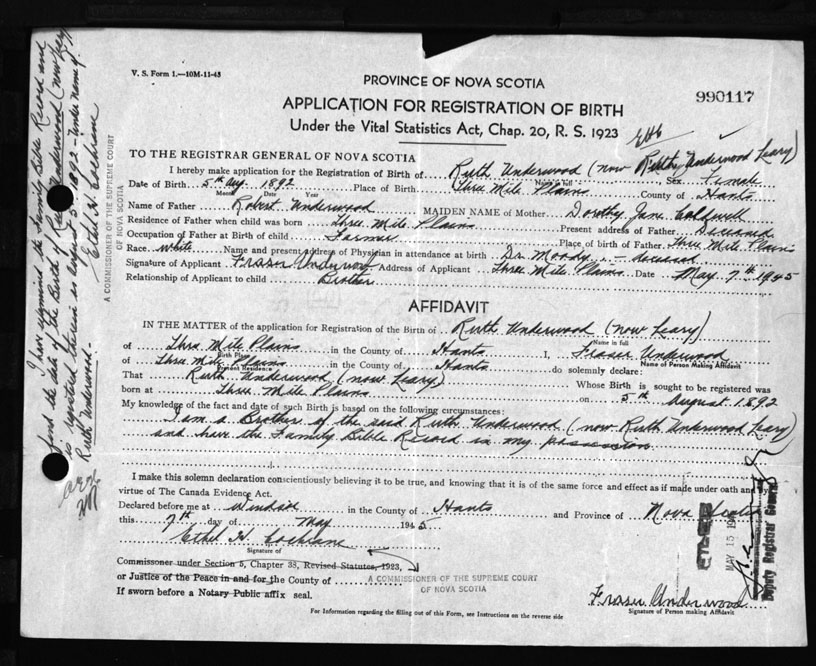 V. S. Form 1.—10M-11-43
PROVINCE OF NOVA SCOTIA
990117
APPLICATION FOR REGISTRATION OF BIRTH
Under the Vital Statistics Act, Chap. 20, R. S. 1923
TO THE REGISTRAR GENERAL OF NOVA SCOTIA
I hereby make application for the Registration of Birth of Ruth Underwood (now Ruth Underwood Leary)
Name in full Sex Female
Date of Birth 5th Aug. 1892 Place of Birth Three Mile Plains County of Hants
Month Date Year
Name of Father Robert Underwood MAIDEN NAME of Mother Dorothy Jane Caldwell
Residence of Father when child was born Three Mile Plains Present address of Father Deceased
Occupation of Father at Birth of child Farmer Place of birth of Father Three Mile Plains
Race White Name and present address of Physician in attendance at birth Dr. Moody - deceased
Signature of Applicant Fraser Underwood Address of Applicant Three Mile Plains Date May 7th 1945
Relationship of Applicant to child Brother
AFFIDAVIT
IN THE MATTER of the application for Registration of the Birth of Ruth Underwood (now Leary)
Name in full
of Three Mile Plains in the County of Hants I, Fraser Underwood
Birth Place Name of Person Making Affidavit
of Three Mile Plains in the County of Hants do solemnly declare:
Present Residence
That Ruth Underwood (now Leary) Whose Birth is sought to be registered was
born at Three Mile Plains on 5th August 1892
My knowledge of the fact and date of such Birth is based on the following circumstances:
I am a Brother of the said Ruth Underwood (now Ruth Underwood Leary)
and have the Family Bible Record in my possession
I make this solemn declaration conscientiously believing it to be true, and knowing that it is of the same force and effect as if made under oath and by
virtue of The Canada Evidence Act.
Declared before me at Windsor in the County of Hants and Province of Nova Scotia
this 7th day of May 1945
Ethel H. Cochrane
Signature of
Commissioner under Section 5, Chapter 38, Revised Statutes, 1923,
or Justice of the Peace in and for the County of
A COMMISSIONER OF THE SUPREME COURT
OF NOVA SCOTIA
If sworn before a Notary Public affix seal.
Fraser Underwood
Signature of Person making Affidavit
For Information regarding the filling out of this Form, see Instructions on the reverse side
MAY 15 194
Deputy Registrar General
I have examined the Family Bible Record and
find the date of the Birth of Ruth Underwood (now Leary)
is registered therein as August 5th 1892 - under name of
Ruth Underwood.
Ethel H. Cochrane
A COMMISSIONER OF THE SUPREME COURT
OF NOVA SCOTIA